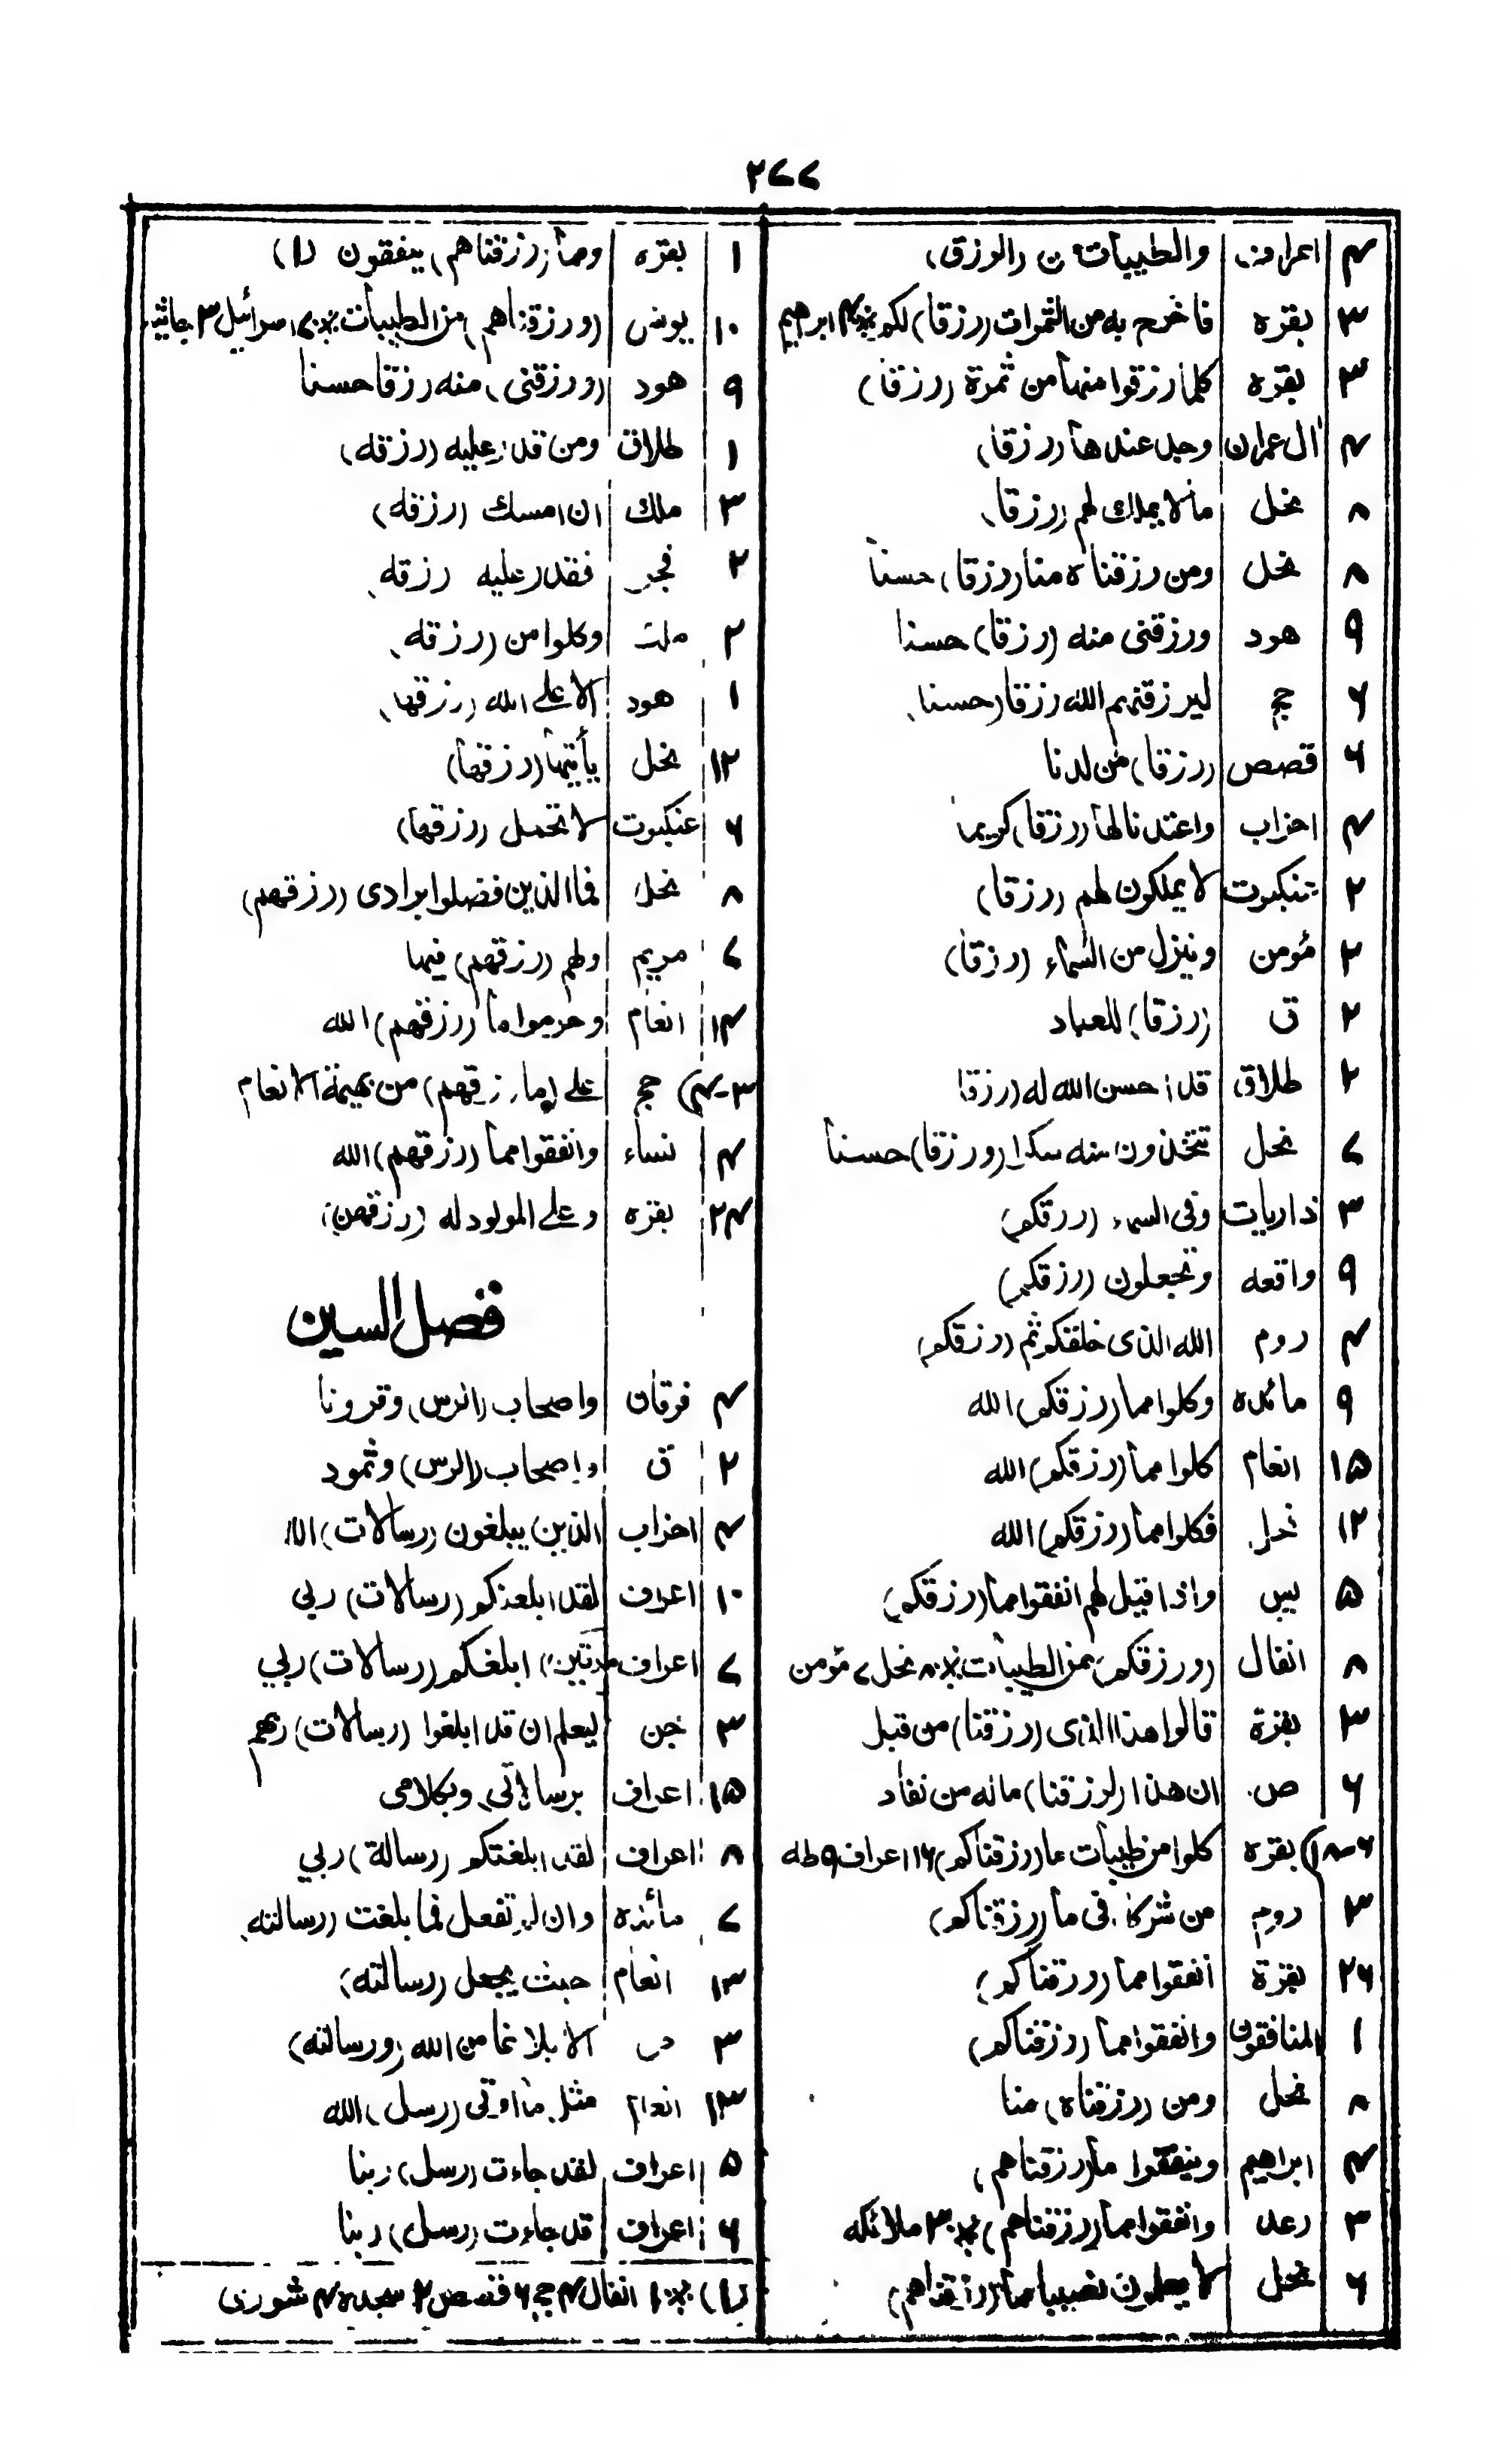 ۲۷۷
۴ اعراف والطیبات من (الرزق)
۳ بقره فاخرج به من الثمرات (رزقا) لکم ۴ ابرهیم
۳ بقره کلما رزقوا منها من ثمرة (رزقا)
۴ آل عمران وجد عندها (رزقا)
۸ نحل مالا یملك لهم (رزقا)
۸ نحل ومن رزقناه منا (رزقا) حسنا
۹ هود ورزقنی منه (رزقا) حسنا
۶ حج لیرزقنهم الله رزقا (حسنا)
۶ قصص (رزقا) من لدنا
۴ احزاب واعتدنا لها (رزقا) کریما
۲ عنکبوت لا یملکون لهم (رزقا)
۲ مؤمن وینزل من السماء (رزقا)
۲ ق (رزقا) للعباد
۲ طلاق قد احسن الله له (رزقا
۷ نحل تتخذون منه سکرا (ورزقا) حسنا
۳ ذاریات وفی السماء (رزقکم)
۹ واقعه وتجعلون (رزقکم)
۴ روم الله الذی خلقکم ثم (رزقکم)
۹ مائده وکلوا مما (رزقکم) الله
۱۵ انعام کلوا مما (رزقکم) الله
۱۲ نحل فکلوا مما (رزقکم) الله
۵ یس واذا قیل لهم انفقوا مما (رزقکم)
۸ انفال (ورزقکم) من الطیبات ۸ نحل ۷ مؤمن
۳ بقرة قالوا هذا الذی (رزقنا) من قبل
۶ ص ان هذا (لرزقنا) ماله من نفاد
۶-۱۸) بقره کلوا من طیبات ما (رزقناکم) ۱۶ اعراف ۹ طه
۳ روم من شرکاء فی ما (رزقناکم)
۲۶ بقرة انفقوا مما (رزقناکم)
۱ المنافقون وانفقوا مما (رزقناکم)
۸ نحل ومن (رزقناه) منا
۴ ابراهیم وینفقوا مما (رزقناهم)
۳ رعد وانفقوا مما (رزقناهم) ۳ ملائکه
۶ نحل لا یعلمون نصیبا مما (رزقناهم)
۱ بقره ومما (رزقناهم) ینفقون (۱)
۱۰ یونس (ورزقناهم) من الطیبات ۷ اسرائیل ۳ جاثیه
۹ هود (ورزقنی) منه رزقا حسنا
۱ طلاق ومن قدر علیه (رزقه)
۳ ملك ان امسك (رزقه)
۲ فجر فقدر علیه رزقه)
۲ ملك وکلوا من (رزقه)
۱ هود الا علی الله (رزقها)
۱۲ نحل یأتیها (رزقها)
۶ عنکبوت لا تحمل (رزقها)
۸ نحل فما الذین فضلوا برادی (رزقهم)
۷ مریم ولهم (رزقهم) فیها
۱۴ انعام وحرموا ما (رزقهم) الله
۳-۴) حج علی (ما رزقهم) من بهیمة الانعام
۴ نساء وانفقوا مما (رزقهم) الله
۲۴ بقره وعلی المولود له (رزقهن)
فصل السین
۴ فرقان واصحاب (الرس) وقرونا
۲ ق واصحاب (الرس) وثمود
۴ احزاب الذین یبلغون (رسالات) الله
۱۰ اعراف لقد ابلغتکم (رسالات) ربی
۷ اعراف مرتین) ابلغکم (رسالات) ربی
۳ جن لیعلم ان قد ابلغوا (رسالات) ربهم
۱۵ اعراف برسالاتی وبکلامی
۸ اعراف لقد ابلغتکم (رسالة) ربی
۷ مائده وان لم تفعل فما بلغت (رسالته)
۱۳ انعام حیث یجعل (رسالته)
۳ الا بلاغا من الله (ورسالته)
۱۳ انعام مثل ما اوتی (رسل) الله
۵ اعراف لقد جاءت (رسل) ربنا
۶ اعراف قد جاءت (رسل) ربنا
(۱) ۱ انفال ۴ حج ۶ قصص ۲ سجده ۴ شوری